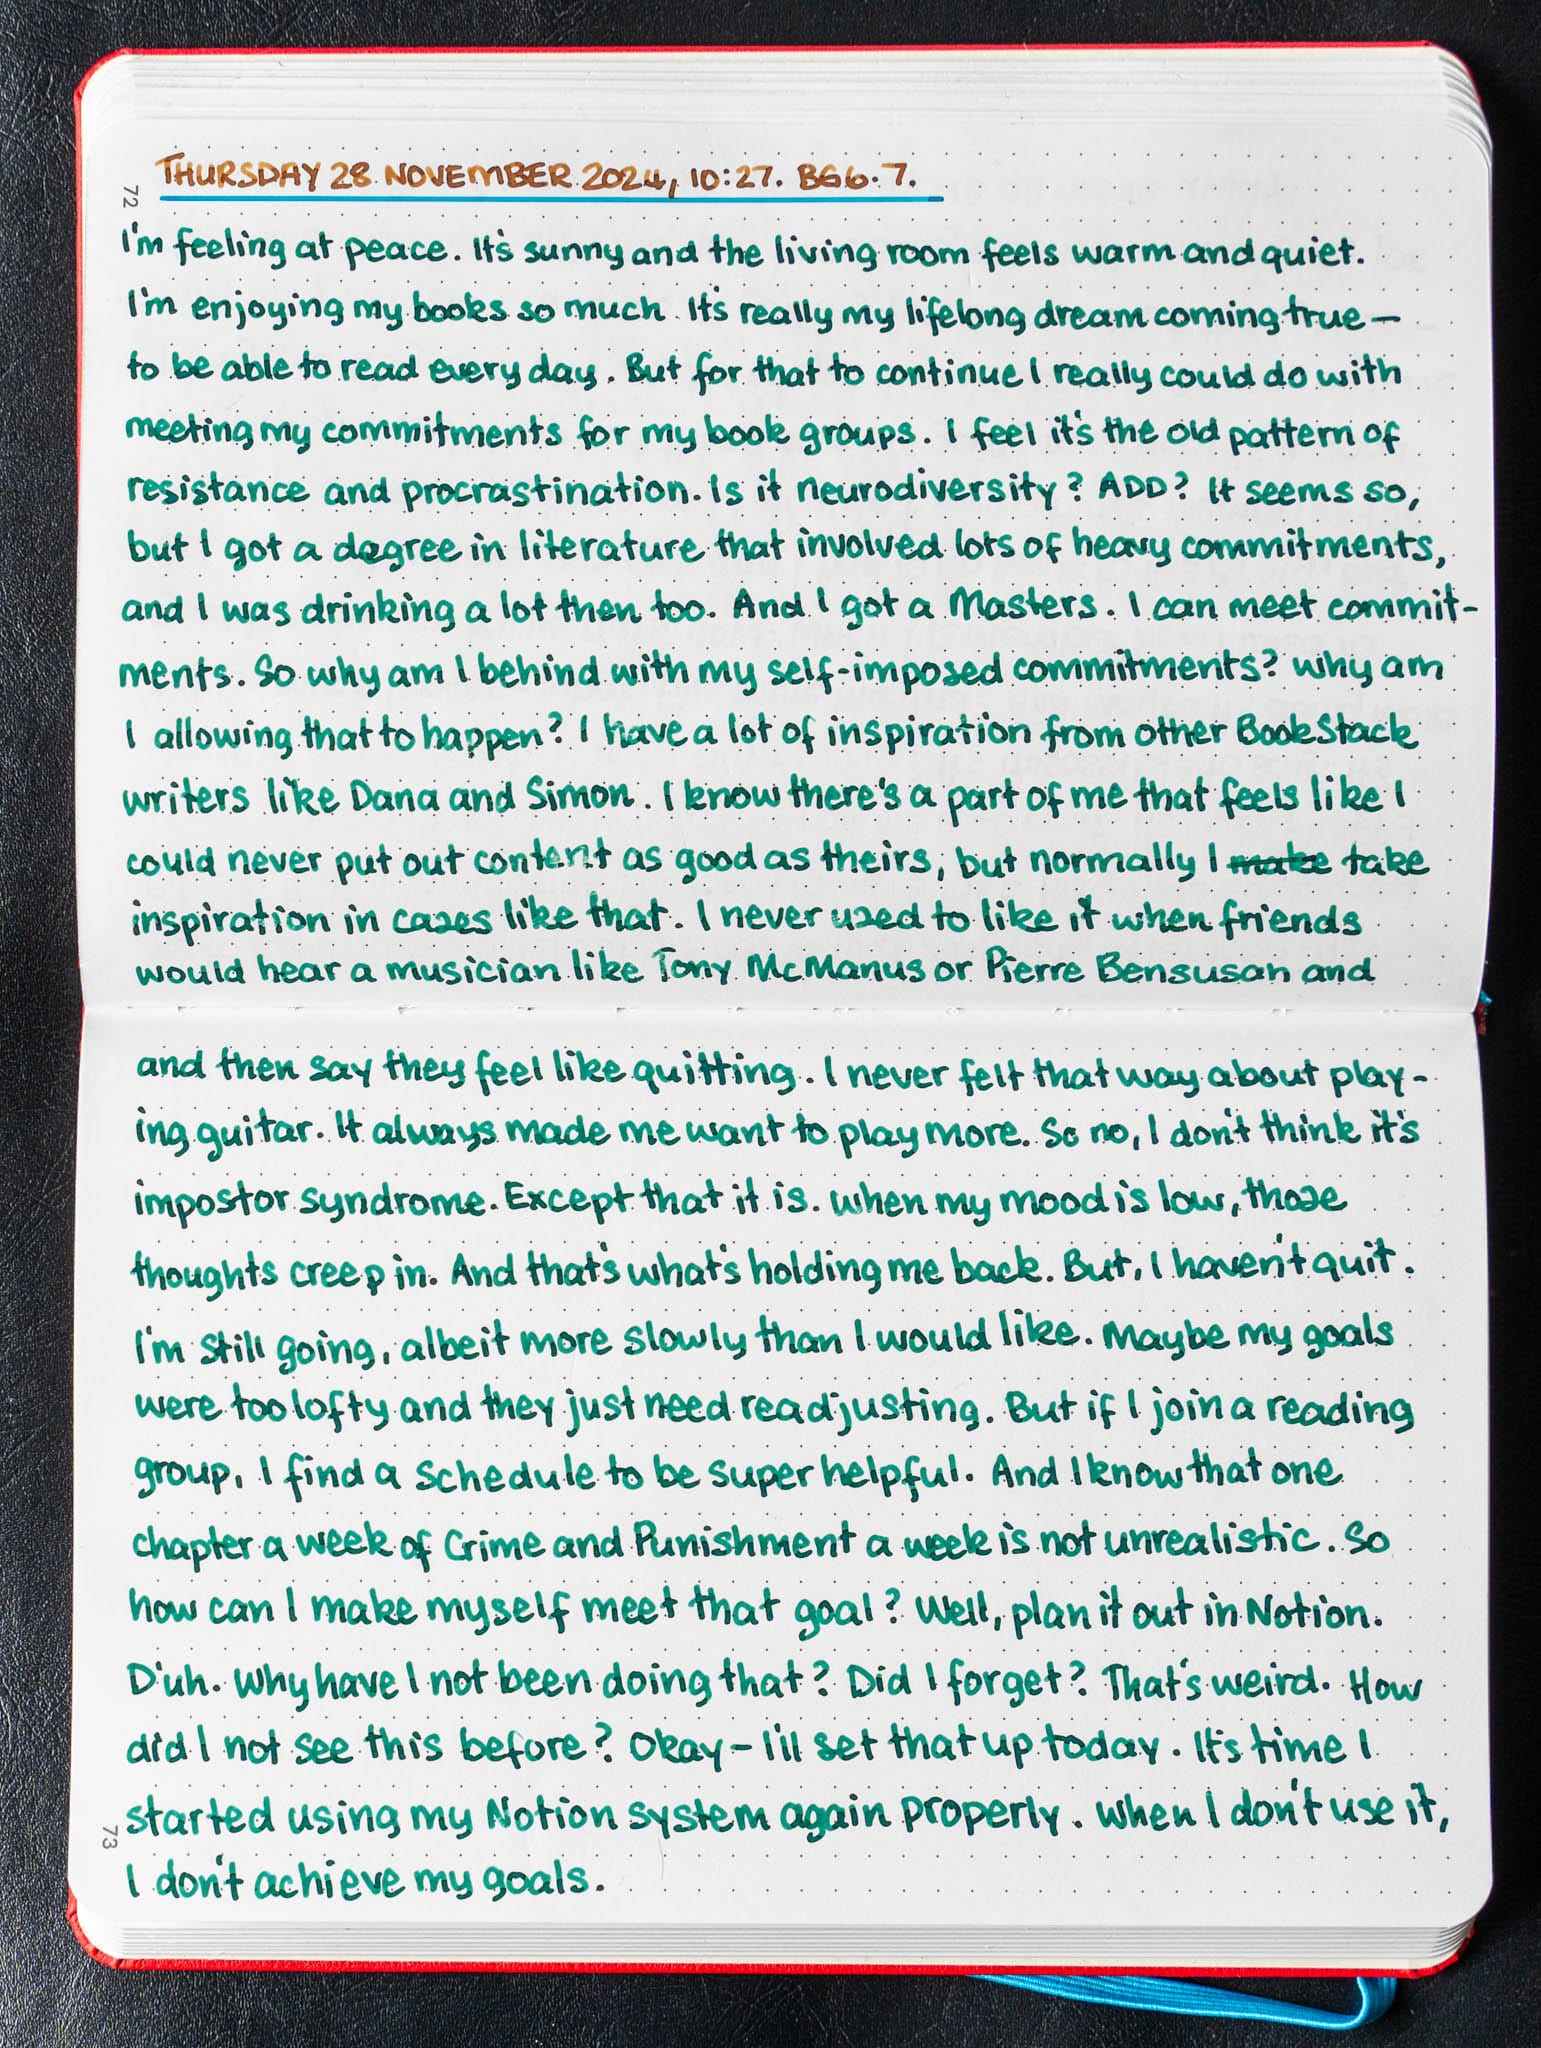 THURSDAY 28 NOVEMBER 2024, 10:27. BG6.7.
72
I'm feeling at peace. It's sunny and the living room feels warm and quiet.
I'm enjoying my books so much. It's really my lifelong dream coming true—
to be able to read every day. But for that to continue I really could do with
meeting my commitments for my book groups. I feel it's the old pattern of
resistance and procrastination. Is it neurodiversity? ADD? It seems so,
but I got a degree in literature that involved lots of heavy commitments,
and I was drinking a lot then too. And I got a Masters. I can meet commit-
ments. So why am I behind with my self-imposed commitments? Why am
I allowing that to happen? I have a lot of inspiration from other BookStack
writers like Dana and Simon. I know there's a part of me that feels like I
could never put out content as good as theirs, but normally I make take
inspiration in cases like that. I never used to like it when friends
would hear a musician like Tony McManus or Pierre Bensusan and
and then say they feel like quitting. I never felt that way about play-
ing guitar. It always made me want to play more. So no, I don't think it's
impostor syndrome. Except that it is. When my mood is low, those
thoughts creep in. And that's what's holding me back. But, I haven't quit.
I'm still going, albeit more slowly than I would like. Maybe my goals
were too lofty and they just need readjusting. But if I join a reading
group, I find a schedule to be super helpful. And I know that one
chapter a week of Crime and Punishment a week is not unrealistic. So
how can I make myself meet that goal? Well, plan it out in Notion.
D'uh. Why have I not been doing that? Did I forget? That's weird. How
did I not see this before? Okay – I'll set that up today. It's time I
started using my Notion system again properly. When I don't use it,
73
I don't achieve my goals.